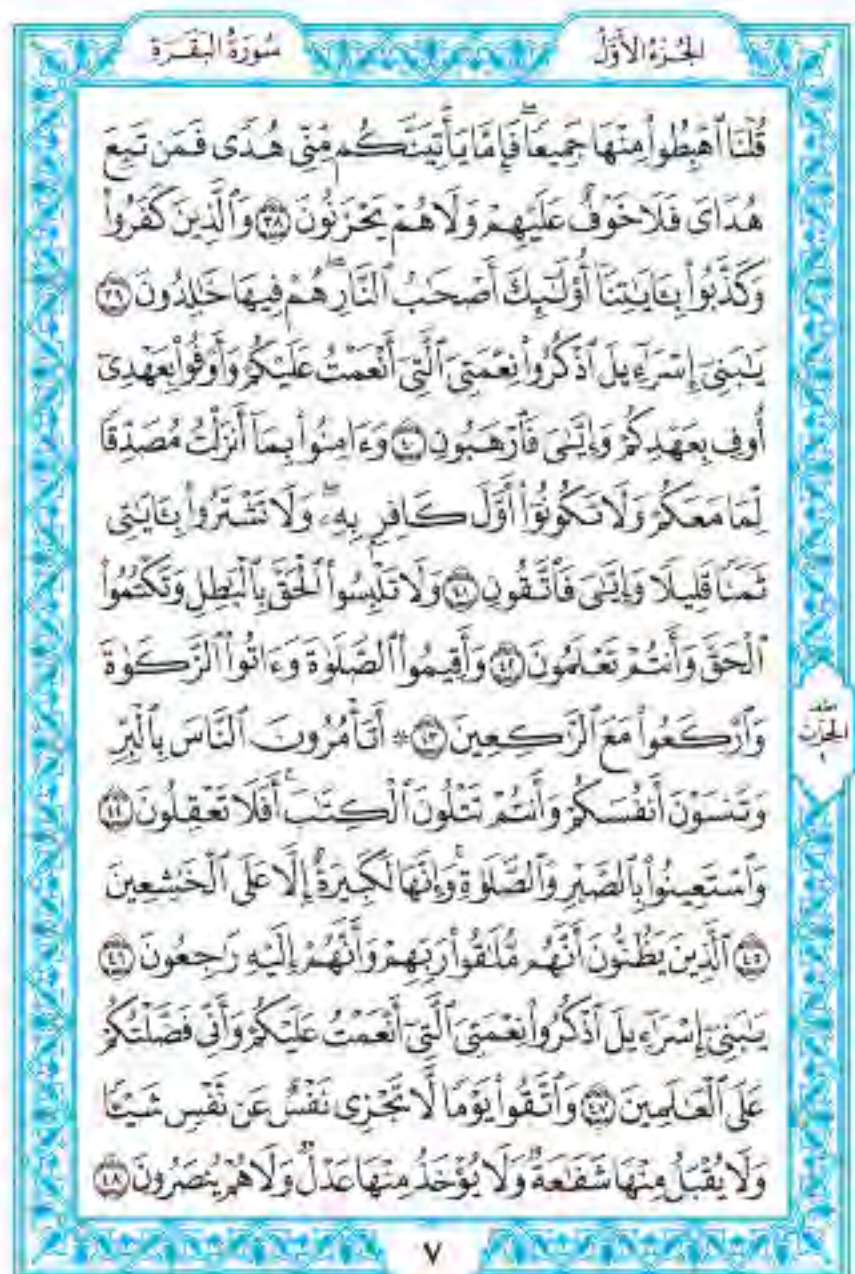 الجُزْءُ الأَوَّلُ
سُورَةُ البَقَرَةِ
قُلْنَا ٱهْبِطُوا۟ مِنْهَا جَمِيعًاۖ فَإِمَّا يَأْتِيَنَّكُم مِّنِّى هُدًى فَمَن تَبِعَ
هُدَاىَ فَلَا خَوْفٌ عَلَيْهِمْ وَلَا هُمْ يَحْزَنُونَ ٣٨ وَٱلَّذِينَ كَفَرُوا۟
وَكَذَّبُوا۟ بِـَٔايَٰتِنَآ أُو۟لَٰٓئِكَ أَصْحَٰبُ ٱلنَّارِۖ هُمْ فِيهَا خَٰلِدُونَ ٣٩
يَٰبَنِىٓ إِسْرَٰٓءِيلَ ٱذْكُرُوا۟ نِعْمَتِىَ ٱلَّتِىٓ أَنْعَمْتُ عَلَيْكُمْ وَأَوْفُوا۟ بِعَهْدِىٓ
أُوفِ بِعَهْدِكُمْ وَإِيَّٰىَ فَٱرْهَبُونِ ٤٠ وَءَامِنُوا۟ بِمَآ أَنزَلْتُ مُصَدِّقًا
لِّمَا مَعَكُمْ وَلَا تَكُونُوٓا۟ أَوَّلَ كَافِرٍۭ بِهِۦۖ وَلَا تَشْتَرُوا۟ بِـَٔايَٰتِى
ثَمَنًا قَلِيلًا وَإِيَّٰىَ فَٱتَّقُونِ ٤١ وَلَا تَلْبِسُوا۟ ٱلْحَقَّ بِٱلْبَٰطِلِ وَتَكْتُمُوا۟
ٱلْحَقَّ وَأَنتُمْ تَعْلَمُونَ ٤٢ وَأَقِيمُوا۟ ٱلصَّلَوٰةَ وَءَاتُوا۟ ٱلزَّكَوٰةَ
وَٱرْكَعُوا۟ مَعَ ٱلرَّٰكِعِينَ ٤٣ ۞ أَتَأْمُرُونَ ٱلنَّاسَ بِٱلْبِرِّ
وَتَنسَوْنَ أَنفُسَكُمْ وَأَنتُمْ تَتْلُونَ ٱلْكِتَٰبَۚ أَفَلَا تَعْقِلُونَ ٤٤
وَٱسْتَعِينُوا۟ بِٱلصَّبْرِ وَٱلصَّلَوٰةِۚ وَإِنَّهَا لَكَبِيرَةٌ إِلَّا عَلَى ٱلْخَٰشِعِينَ
٤٥ ٱلَّذِينَ يَظُنُّونَ أَنَّهُم مُّلَٰقُوا۟ رَبِّهِمْ وَأَنَّهُمْ إِلَيْهِ رَٰجِعُونَ ٤٦
يَٰبَنِىٓ إِسْرَٰٓءِيلَ ٱذْكُرُوا۟ نِعْمَتِىَ ٱلَّتِىٓ أَنْعَمْتُ عَلَيْكُمْ وَأَنِّى فَضَّلْتُكُمْ
عَلَى ٱلْعَٰلَمِينَ ٤٧ وَٱتَّقُوا۟ يَوْمًا لَّا تَجْزِى نَفْسٌ عَن نَّفْسٍ شَيْـًٔا
وَلَا يُقْبَلُ مِنْهَا شَفَٰعَةٌ وَلَا يُؤْخَذُ مِنْهَا عَدْلٌ وَلَا هُمْ يُنصَرُونَ ٤٨
الحِزْب
١
٧